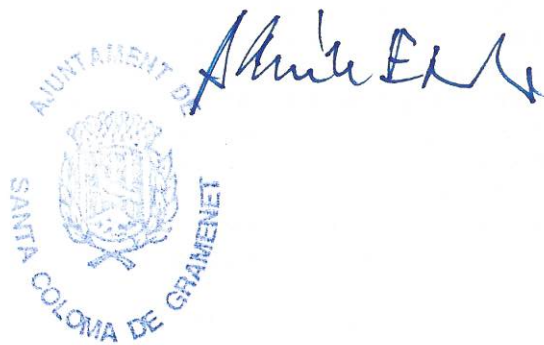 AJUNTAMENT DE
SANTA COLOMA DE GRAMENET